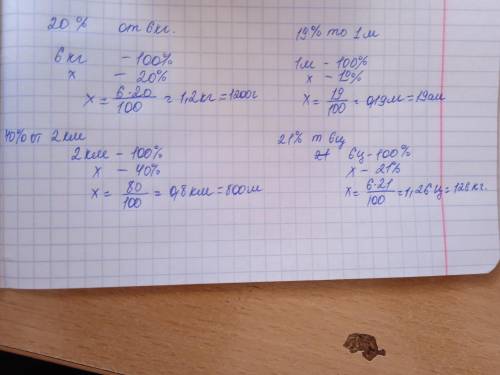 20 % от 6кг.
6кг - 100%
х - 20%
х = 6·20/100 = 1,2кг = 1200г
19% то 1м
1м - 100%
х - 19%
х = 19/100 = 0,19м = 19см
40% от 2км
2км - 100%
х - 40%
х = 80/100 = 0,8км = 800м
21% т 6ц
21 6ц - 100%
х - 21%
х = 6·21/100 = 1,26ц = 126кг.